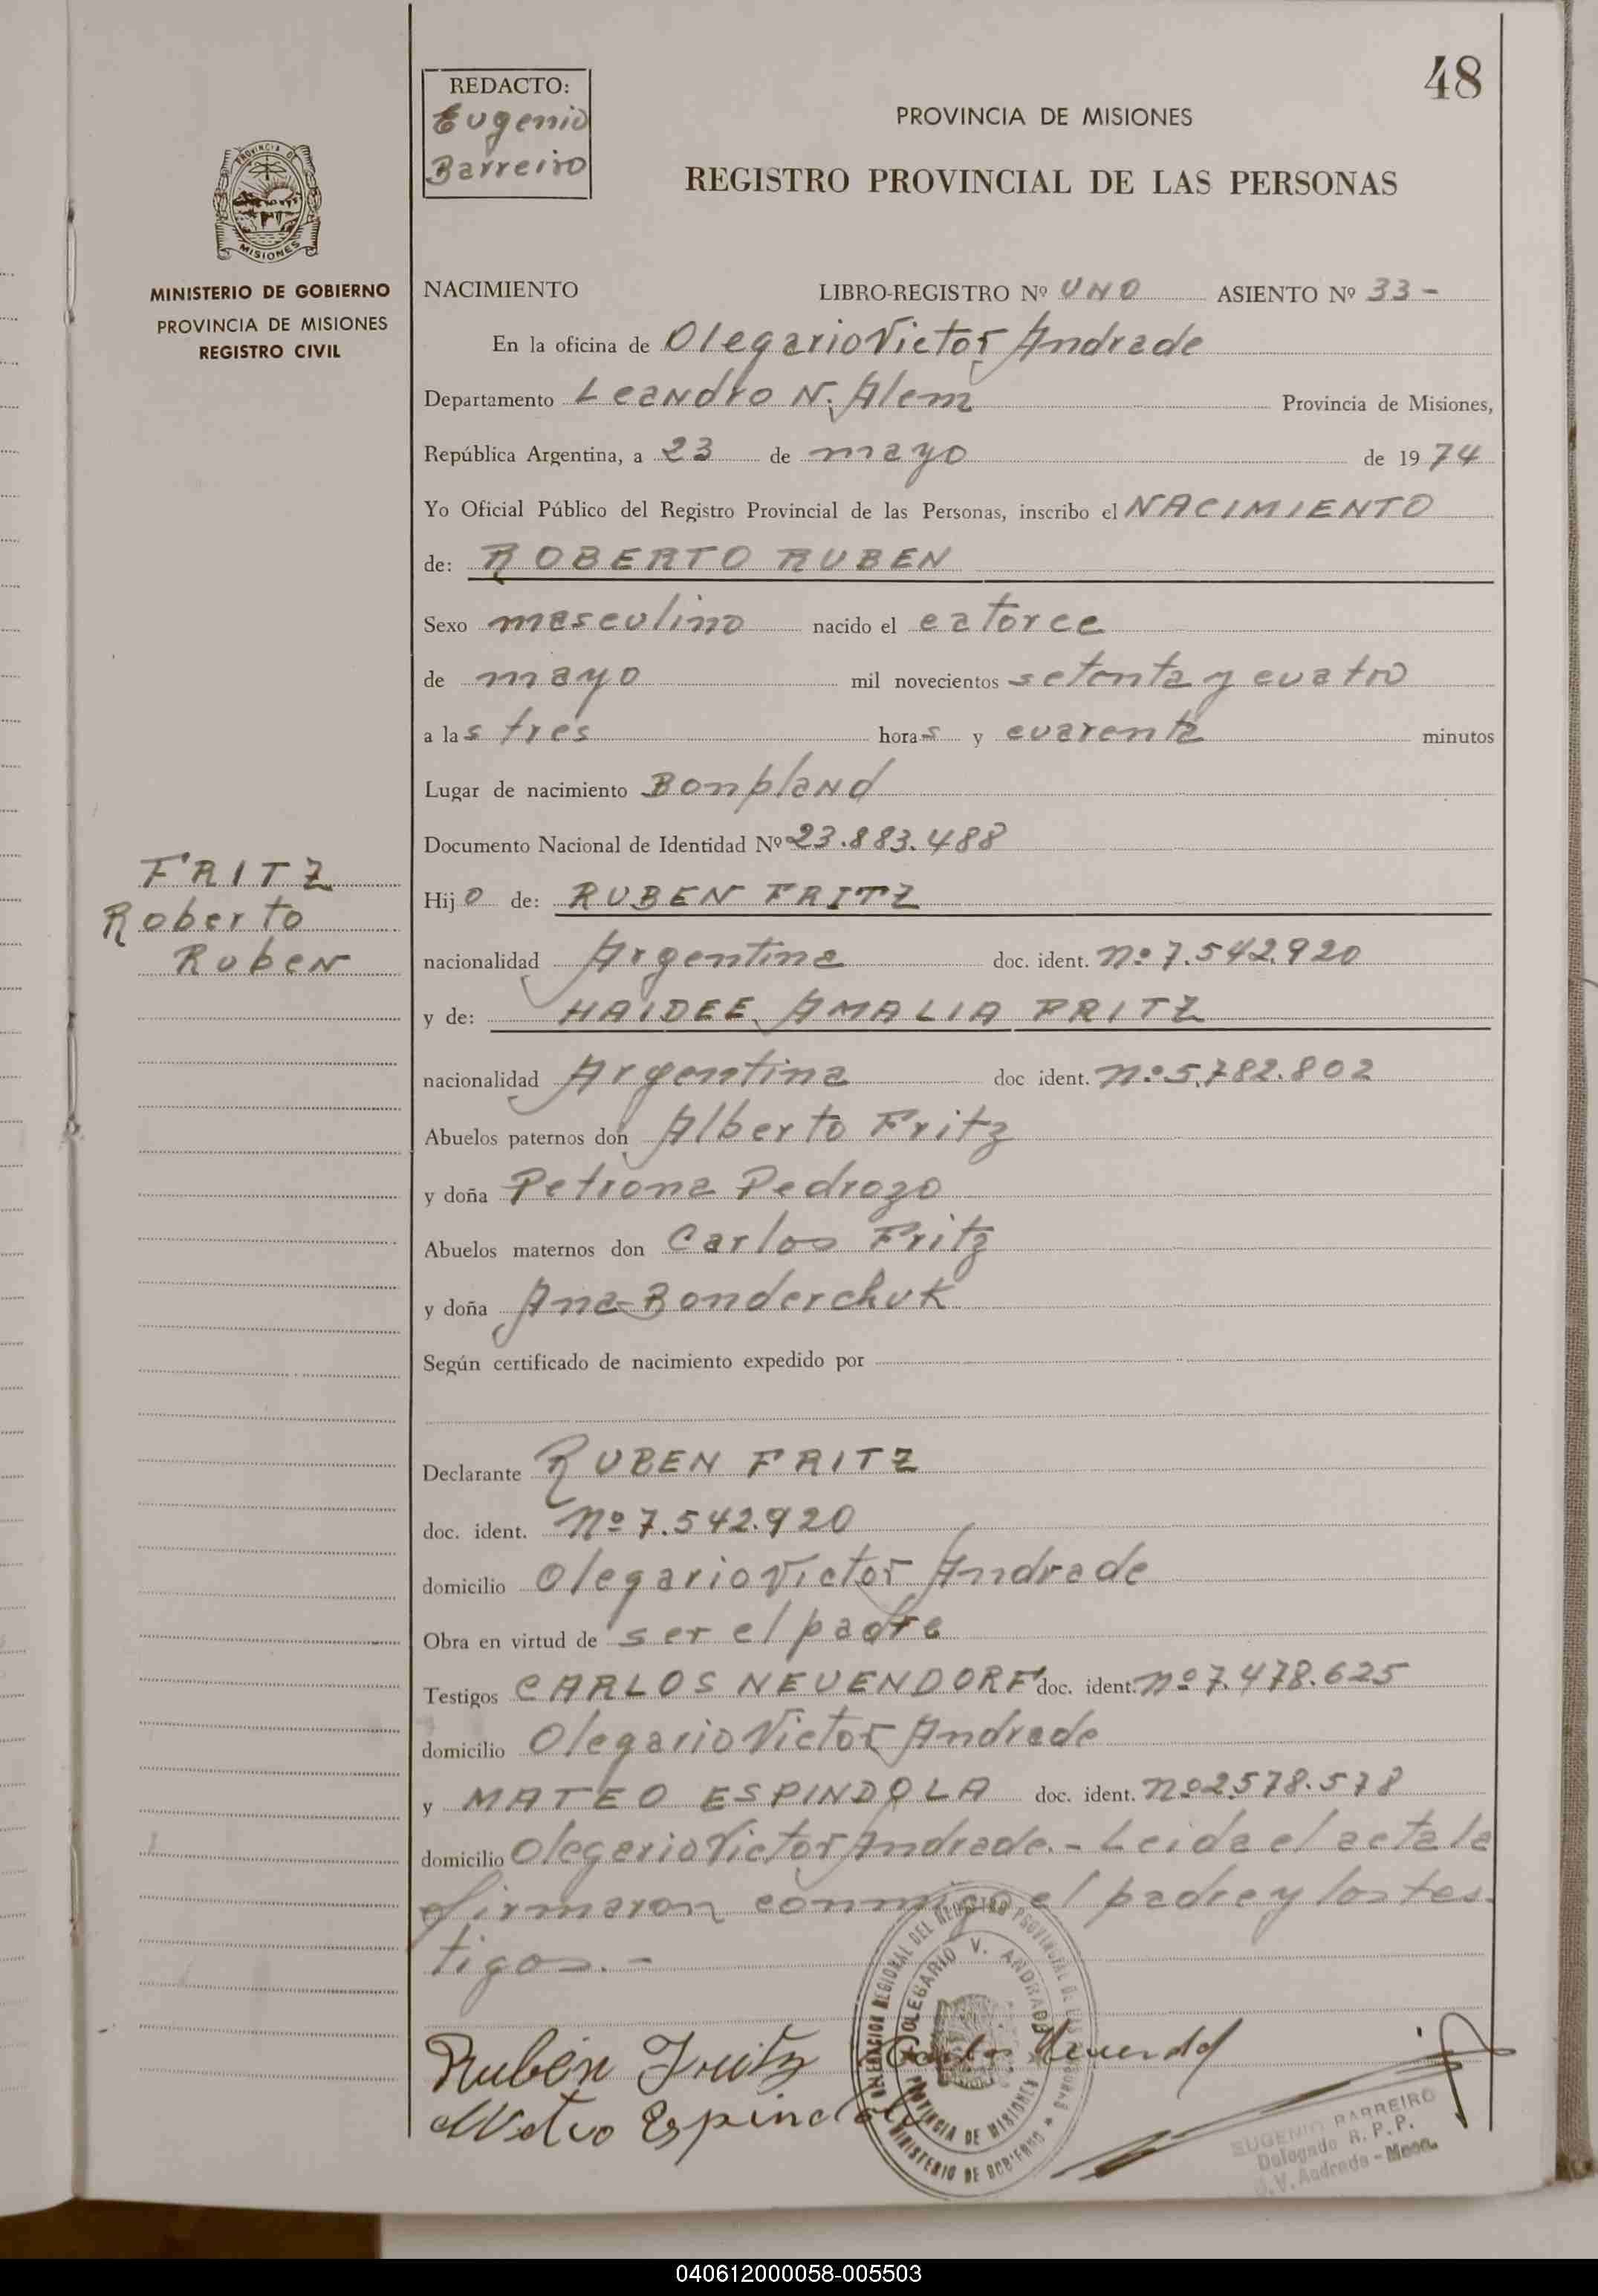 48
REDACTO:
Eugenio
Barreiro
PROVINCIA DE MISIONES
REGISTRO PROVINCIAL DE LAS PERSONAS
PROVINCIA DE
MISIONES
MINISTERIO DE GOBIERNO
PROVINCIA DE MISIONES
REGISTRO CIVIL
NACIMIENTO LIBRO-REGISTRO Nº UNO ASIENTO Nº 33-
En la oficina de Olegario Victor Andrade
Departamento Leandro N. Alem Provincia de Misiones,
República Argentina, a 23 de mayo de 1974
Yo Oficial Público del Registro Provincial de las Personas, inscribo el NACIMIENTO
de: ROBERTO RUBEN
Sexo masculino nacido el catorce
de mayo mil novecientos setenta y cuatro
a las tres horas y cuarenta minutos
Lugar de nacimiento Bonpland
Documento Nacional de Identidad Nº 23.883.488
FRITZ
Roberto
Ruben
Hijo de: RUBEN FRITZ
nacionalidad Argentina doc. ident. nº 7.542.920
y de: HAIDEE AMALIA FRITZ
nacionalidad Argentina doc ident. nº 5.782.802
Abuelos paternos don Alberto Fritz
y doña Petrona Pedrozo
Abuelos maternos don Carlos Fritz
y doña Ana Bonderchuk
Según certificado de nacimiento expedido por
Declarante RUBEN FRITZ
doc. ident. Nº 7.542.920
domicilio Olegario Victor Andrade
Obra en virtud de ser el padre
Testigos CARLOS NEUENDORF doc. ident. nº 7.478.625
domicilio Olegario Victor Andrade
y MATEO ESPINDOLA doc. ident. nº 2.578.578
domicilio Olegario Victor Andrade.- Leida el acta la
firmaron conmigo el padre y los tes-
tigos.-
Rubén Fritz Carlos Neuendorf
Mateo Espindola
DELEGACION REGIONAL DEL REGISTRO PROVINCIAL DE LAS PERSONAS
MINISTERIO DE GOBIERNO
OLEGARIO V. ANDRADE
PROVINCIA DE MISIONES
EUGENIO BARREIRO
Delegado R. P. P.
O. V. Andrade - Mnes.
040612000058-005503